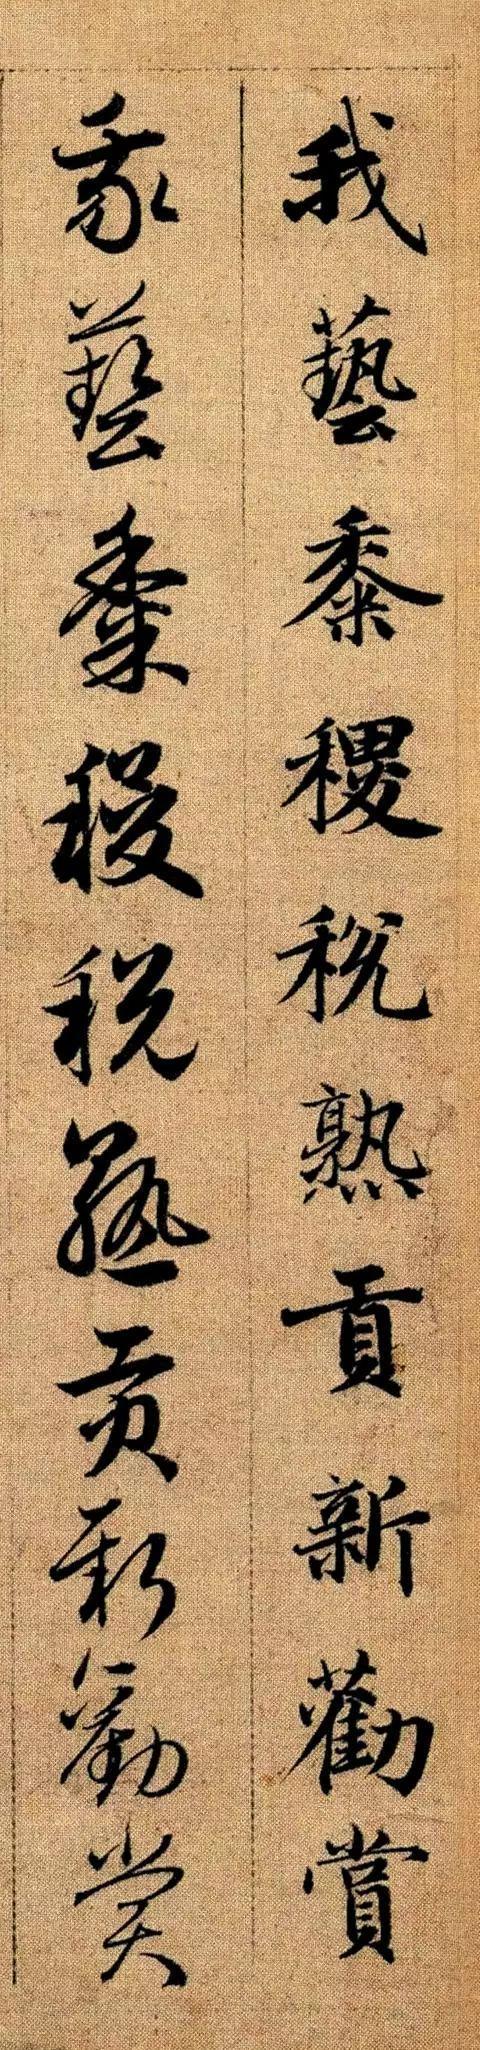 我藝黍稷稅熟貢新勸賞
我藝黍稷稅熟貢新勸賞